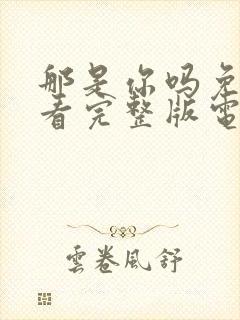 那是你吗免
看完整版電
雲卷風舒